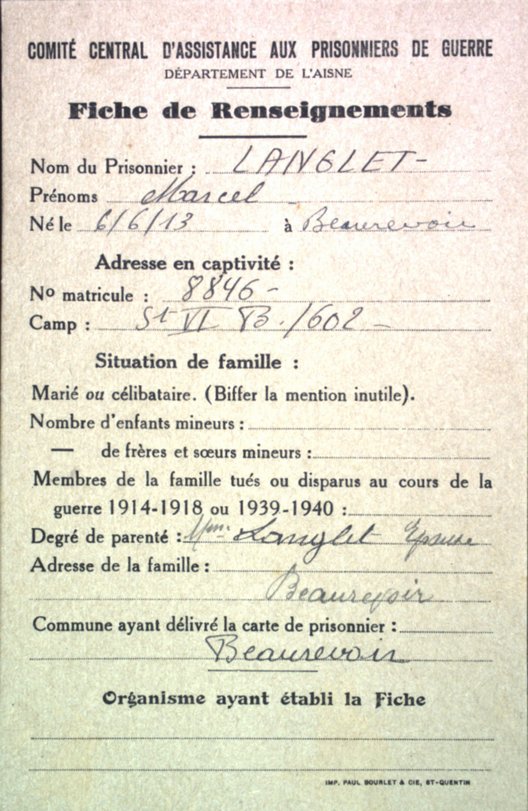 COMITÉ CENTRAL D'ASSISTANCE AUX PRISONNIERS DE GUERRE
DÉPARTEMENT DE L'AISNE
Fiche de Renseignements
Nom du Prisonnier : LANGLET-
Prénoms Marcel
Né le 6/6/13 à Beaurevoir
Adresse en captivité :
No matricule : 8846-
Camp : St VI B./602-
Situation de famille :
Marié ou célibataire. (Biffer la mention inutile).
Nombre d'enfants mineurs :
— de frères et sœurs mineurs :
Membres de la famille tués ou disparus au cours de la
guerre 1914-1918 ou 1939-1940 :
Degré de parenté : Mme Langlet Epouse
Adresse de la famille :
Beaurevoir
Commune ayant délivré la carte de prisonnier :
Beaurevoir
Organisme ayant établi la Fiche
IMP. PAUL BOURLET & CIE, ST-QUENTIN